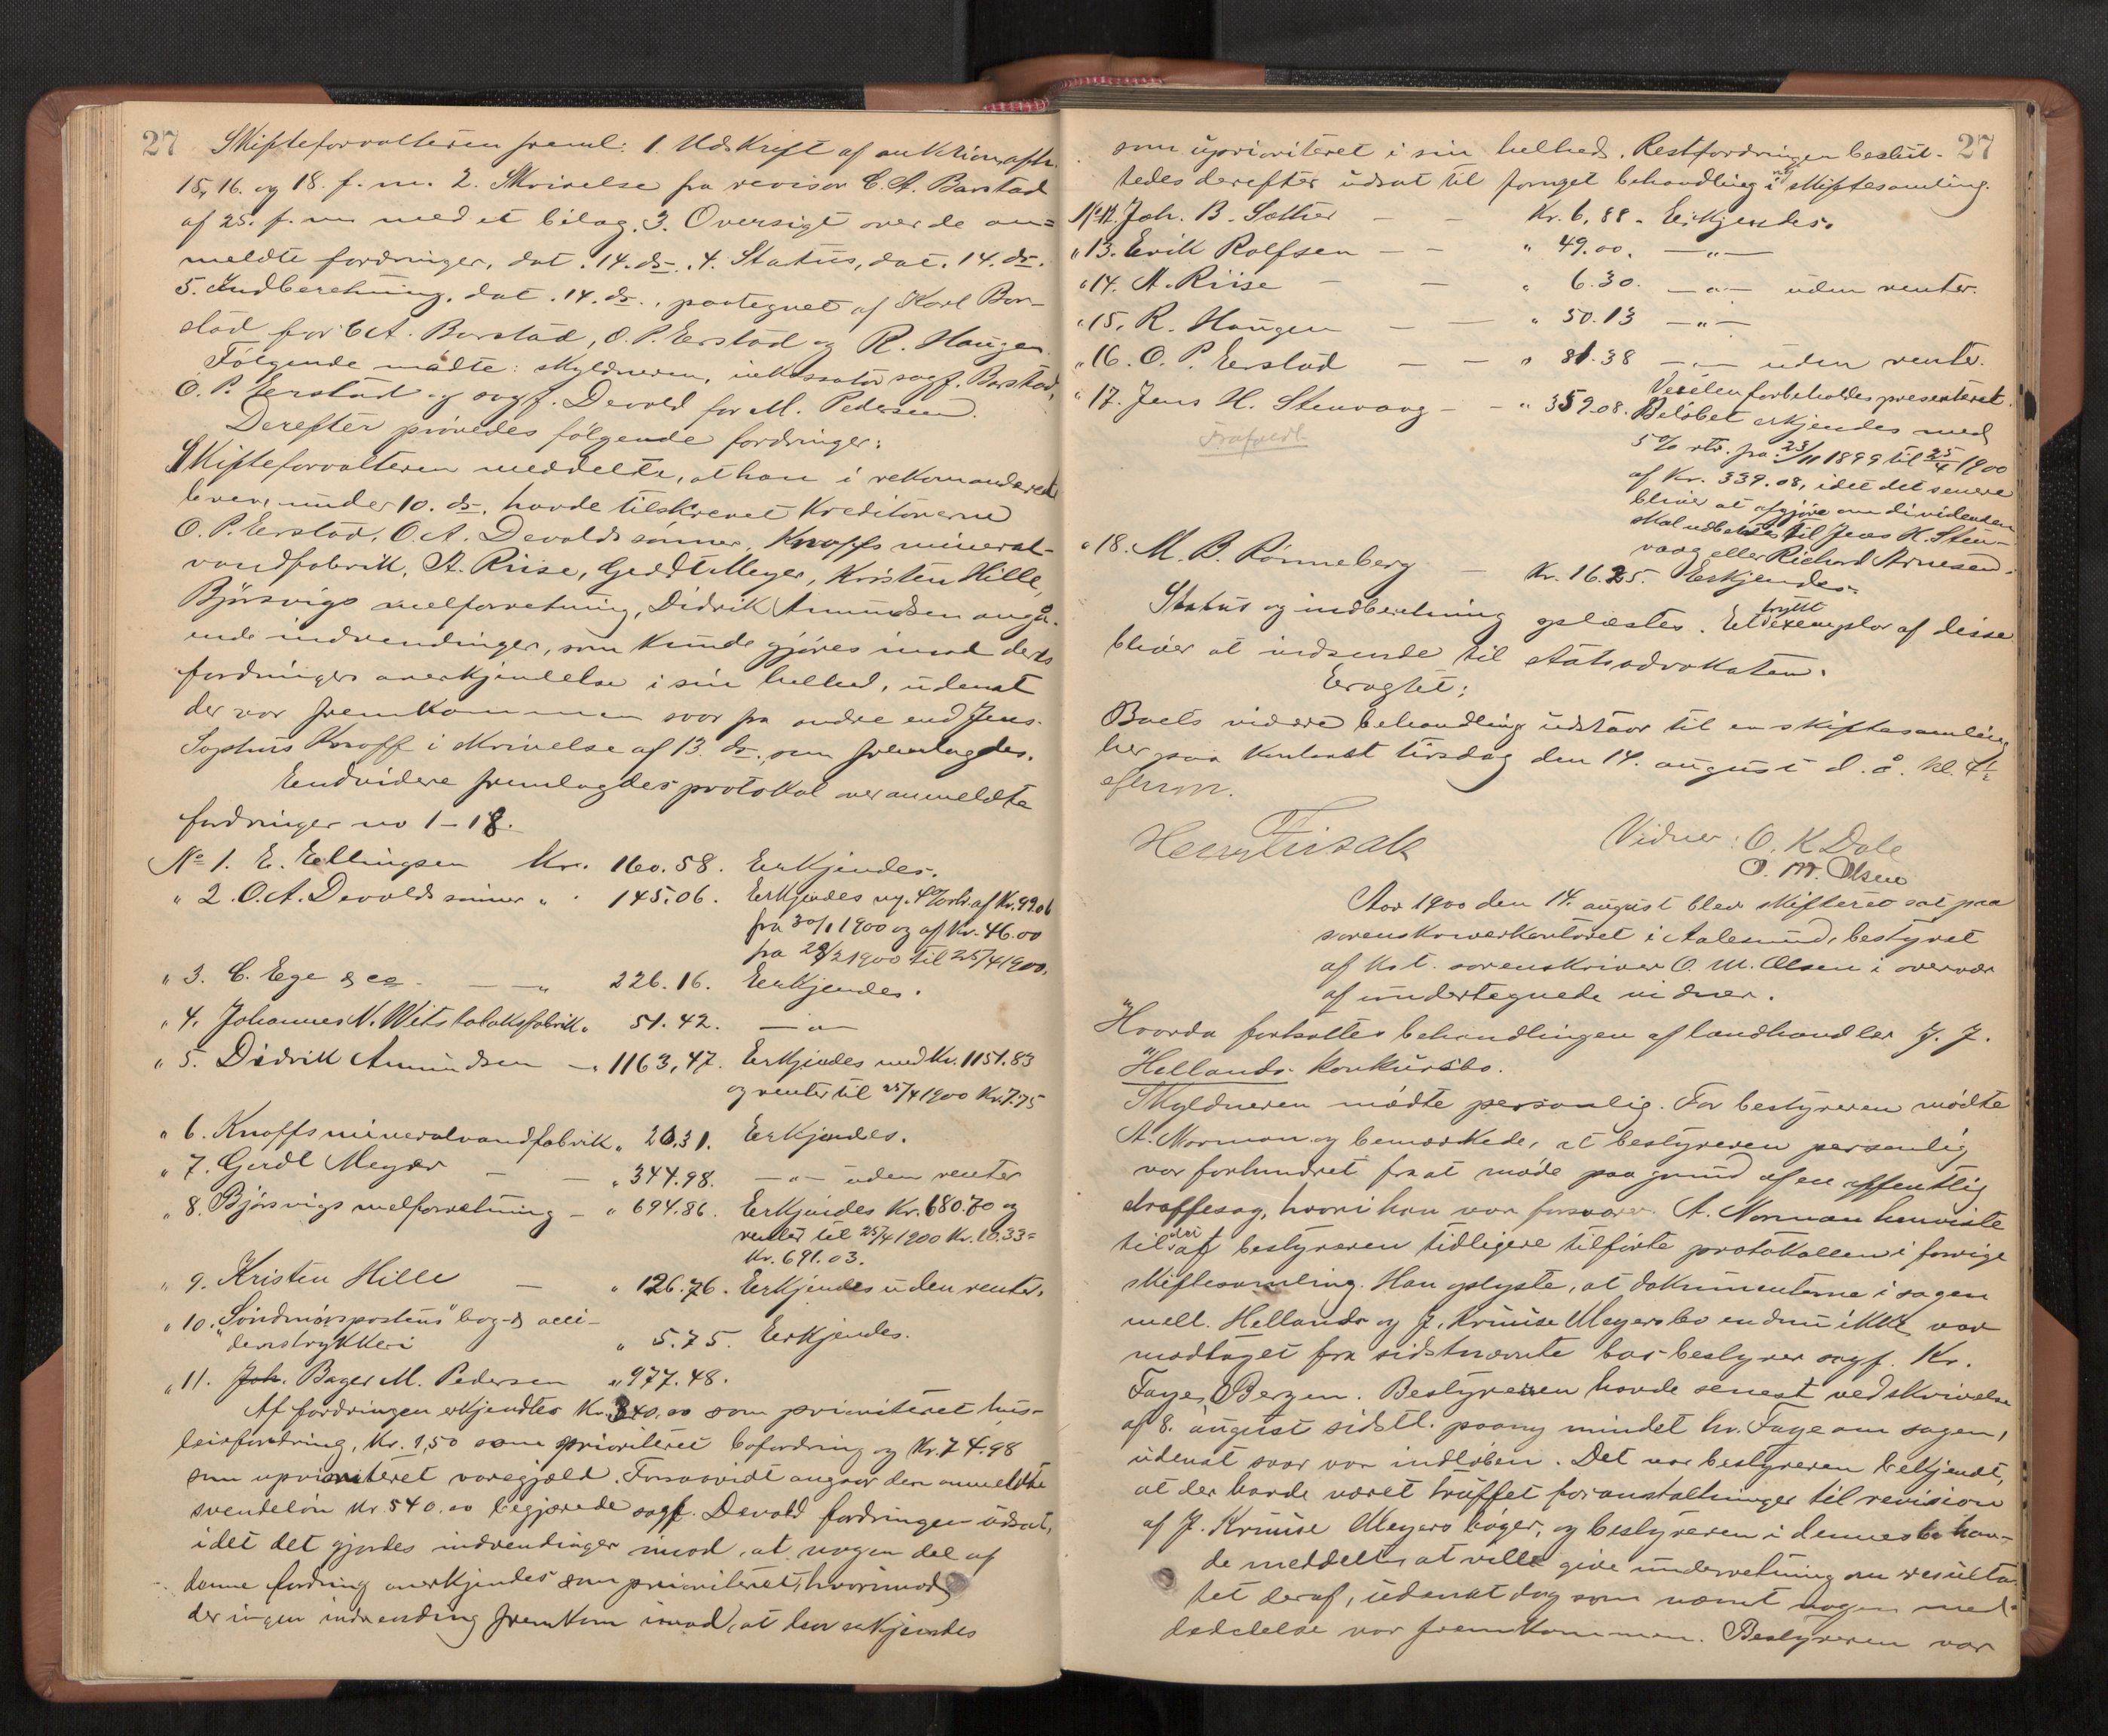 27 Skifteforvalteren freml. 1. Udskrift af auktionsafh.
15, 16. og 18. f. m. 2. Skrivelse fra revisor C. A. Barstad
af 25. f. m. med et bilag. 3. Oversigt over de an=
meldte fordringer, dat. 14. ds. 4. Status, dat. 14. ds.
5. Indberetning, dat. 14. ds., paategnet af Karl Bar-
stad for C. A. Barstad, O. P. Eerstad og R. Haugen.
Følgende mødte: skyldneren, inkassator sagf. Barstad,
O. P. Eerstad og sagf. Devold for M. Pedersen.
Derefter prøvedes følgende fordringer:
Skifteforvalteren meddelte, at han i rekomanderet
brev, under 10. ds. havde tilskrevet kreditorerne
O. P. Eerstad, O. A. Devolds sønner, Knoffs mineral-
vandfabrik, A. Riise, Gerdt Meyer, Kristen Hille,
Bjørsvigs melforretning, Didrik Amundsen angå-
ende indvendinger, som kunde gjøres imod deres
fordringers anerkjendelse i sin helhed, udenat
der var fremkommen svar fra andre end Jens
Sophus Knoff i skrivelse af 13 ds., som fremlagdes.
Endvidere fremlagdes protokol over anmeldte
fordringer no 1-18.
No 1. E. Ellingsen Kr. 160.58. Erkjendes.
" 2. O. A. Devolds sønner " 145.06. Erkjendes og 4% rtr. af Kr. 99.06
fra 30/1 1900 og af Kr. 46.00
fra 28/2 1900 til 25/4 1900.
" 3. C. Ege & co. — " 226.16. Erkjendes.
" 4. Johannes N. Wits tobaksfabrik " 51.42. — " —
" 5. Didrik Amundsen — " 1163,47. Erkjendes med Kr. 1151.83
og renter til 25/4 1900 Kr. 7.75
" 6. Knoffs mineralvandfabrik " 20,31. Erkjendes.
" 7. Gerdt Meyer — — " 344.98. — " — uden renter
" 8. Bjørsvigs melforretning — " 694.86. Erkjendes Kr. 680.70 og
renter til 25/4 1900 Kr. 10.33=
Kr. 691.03.
" 9. Kristen Hille — " 126.76. Erkjendes uden renter.
" 10. "Søndmørspostens" bog- & acci-
denstrykkeri " 5.75. Erkjendes.
" 11. Joh. Bager M. Pedersen " 977.48.
Af fordringen erkjendtes Kr. 340.00 som prioriteret hus-
leiefordring, Kr. 1,50 som prioriteret bofordring og Kr. 74.98
som uprioriteret varegjæld. Forsaavidt angaar den anmeldte
svendeløn Kr 540.00 begjærede sagf. Devold fordringen udsat,
idet det gjordes indvendinger imod, at nogen del af
denne fordring anerkjendes som prioriteret, hvorimod
der ingen indvending fremkom imod, at den erkjendes
27
som uprioriteret i sin helhed. Restfordringen beslut-
tedes derefter udsat til fornyet behandling i ny skiftesamling.
No 12. Joh. B. Sæther — — Kr. 6,88. Erkjendes.
" 13. Erik Rolfsen — — " 49.00. — " —
" 14. A. Riise — — " 6.30. — " — uden renter.
" 15. R. Haugen — — " 50.13 — " —
" 16. O. P. Eerstad — — " 81.38 — " — uden rente.
Vexelen forbeholdes presenteret.
" 17. Jens H. Stenvaag — — " 359.08. Beløbet erkjendes med
Frafaldt
5% rtr. fra 23/11 1899 til 25/4 1900
af Kr. 339.08, idet det senere
bliver at afgjøre om dividenden
skal udbetales til Jens H. Sten-
vaag eller Richard Arnesen.
" 18. M. B. Rønneberg — Kr. 16.25. Erkjendes.
Status og indberetning oplæstes. Et trykt exemplar af disse
bliver at indsende til statsadvokaten.
Eragtet:
Boets videre behandling udstaar til en skiftesamling
her paa kontoret tirsdag den 14. august d. å. kl. 4½
efterm.
Henr. Finsak Vidner: O. K Dale
O. M. Olsen
Aar 1900 den 14. august blev skifteret sat paa
sorenskriverkontoret i Aalesund, bestyret
af kst. sorenskriver O. M. Olsen i overvær
af undertegnede vidner.
Hvorda fortsattes behandlingen af landhandler J. J.
Hellands konkursbo.
Skyldneren mødte personlig. For bestyreren mødte
A. Norman og bemærkede, at bestyreren personlig
var forhindret fra at møde paa grund af en offentlig
straffesag, hvori han var forsvarer. A. Norman henviste
til det af bestyreren tidligere tilførte protokollen i forrige
skiftesamling. Han oplyste, at dokumenterne i sagen
mell. Hellands og J. Kruuse Meyers bo endnu ikke var
modtaget fra sidstnævnte bos bestyrer sagf. Kr.
Faye, Bergen. Bestyreren havde senest ved skrivelse
af 8. august sidstl. paany mindet hr. Faye om sagen,
udenat svar var indløben. Det var bestyreren bekjendt,
at der havde været truffet foranstaltninger til revision
af J. Kruuse Meyers bøger, og bestyreren i dennes bo hav-
de meddelt, at ville give underretning om resulta-
tet deraf, udenat dog som nævnt nogen med-
deelelse var fremkommen. Bestyreren var